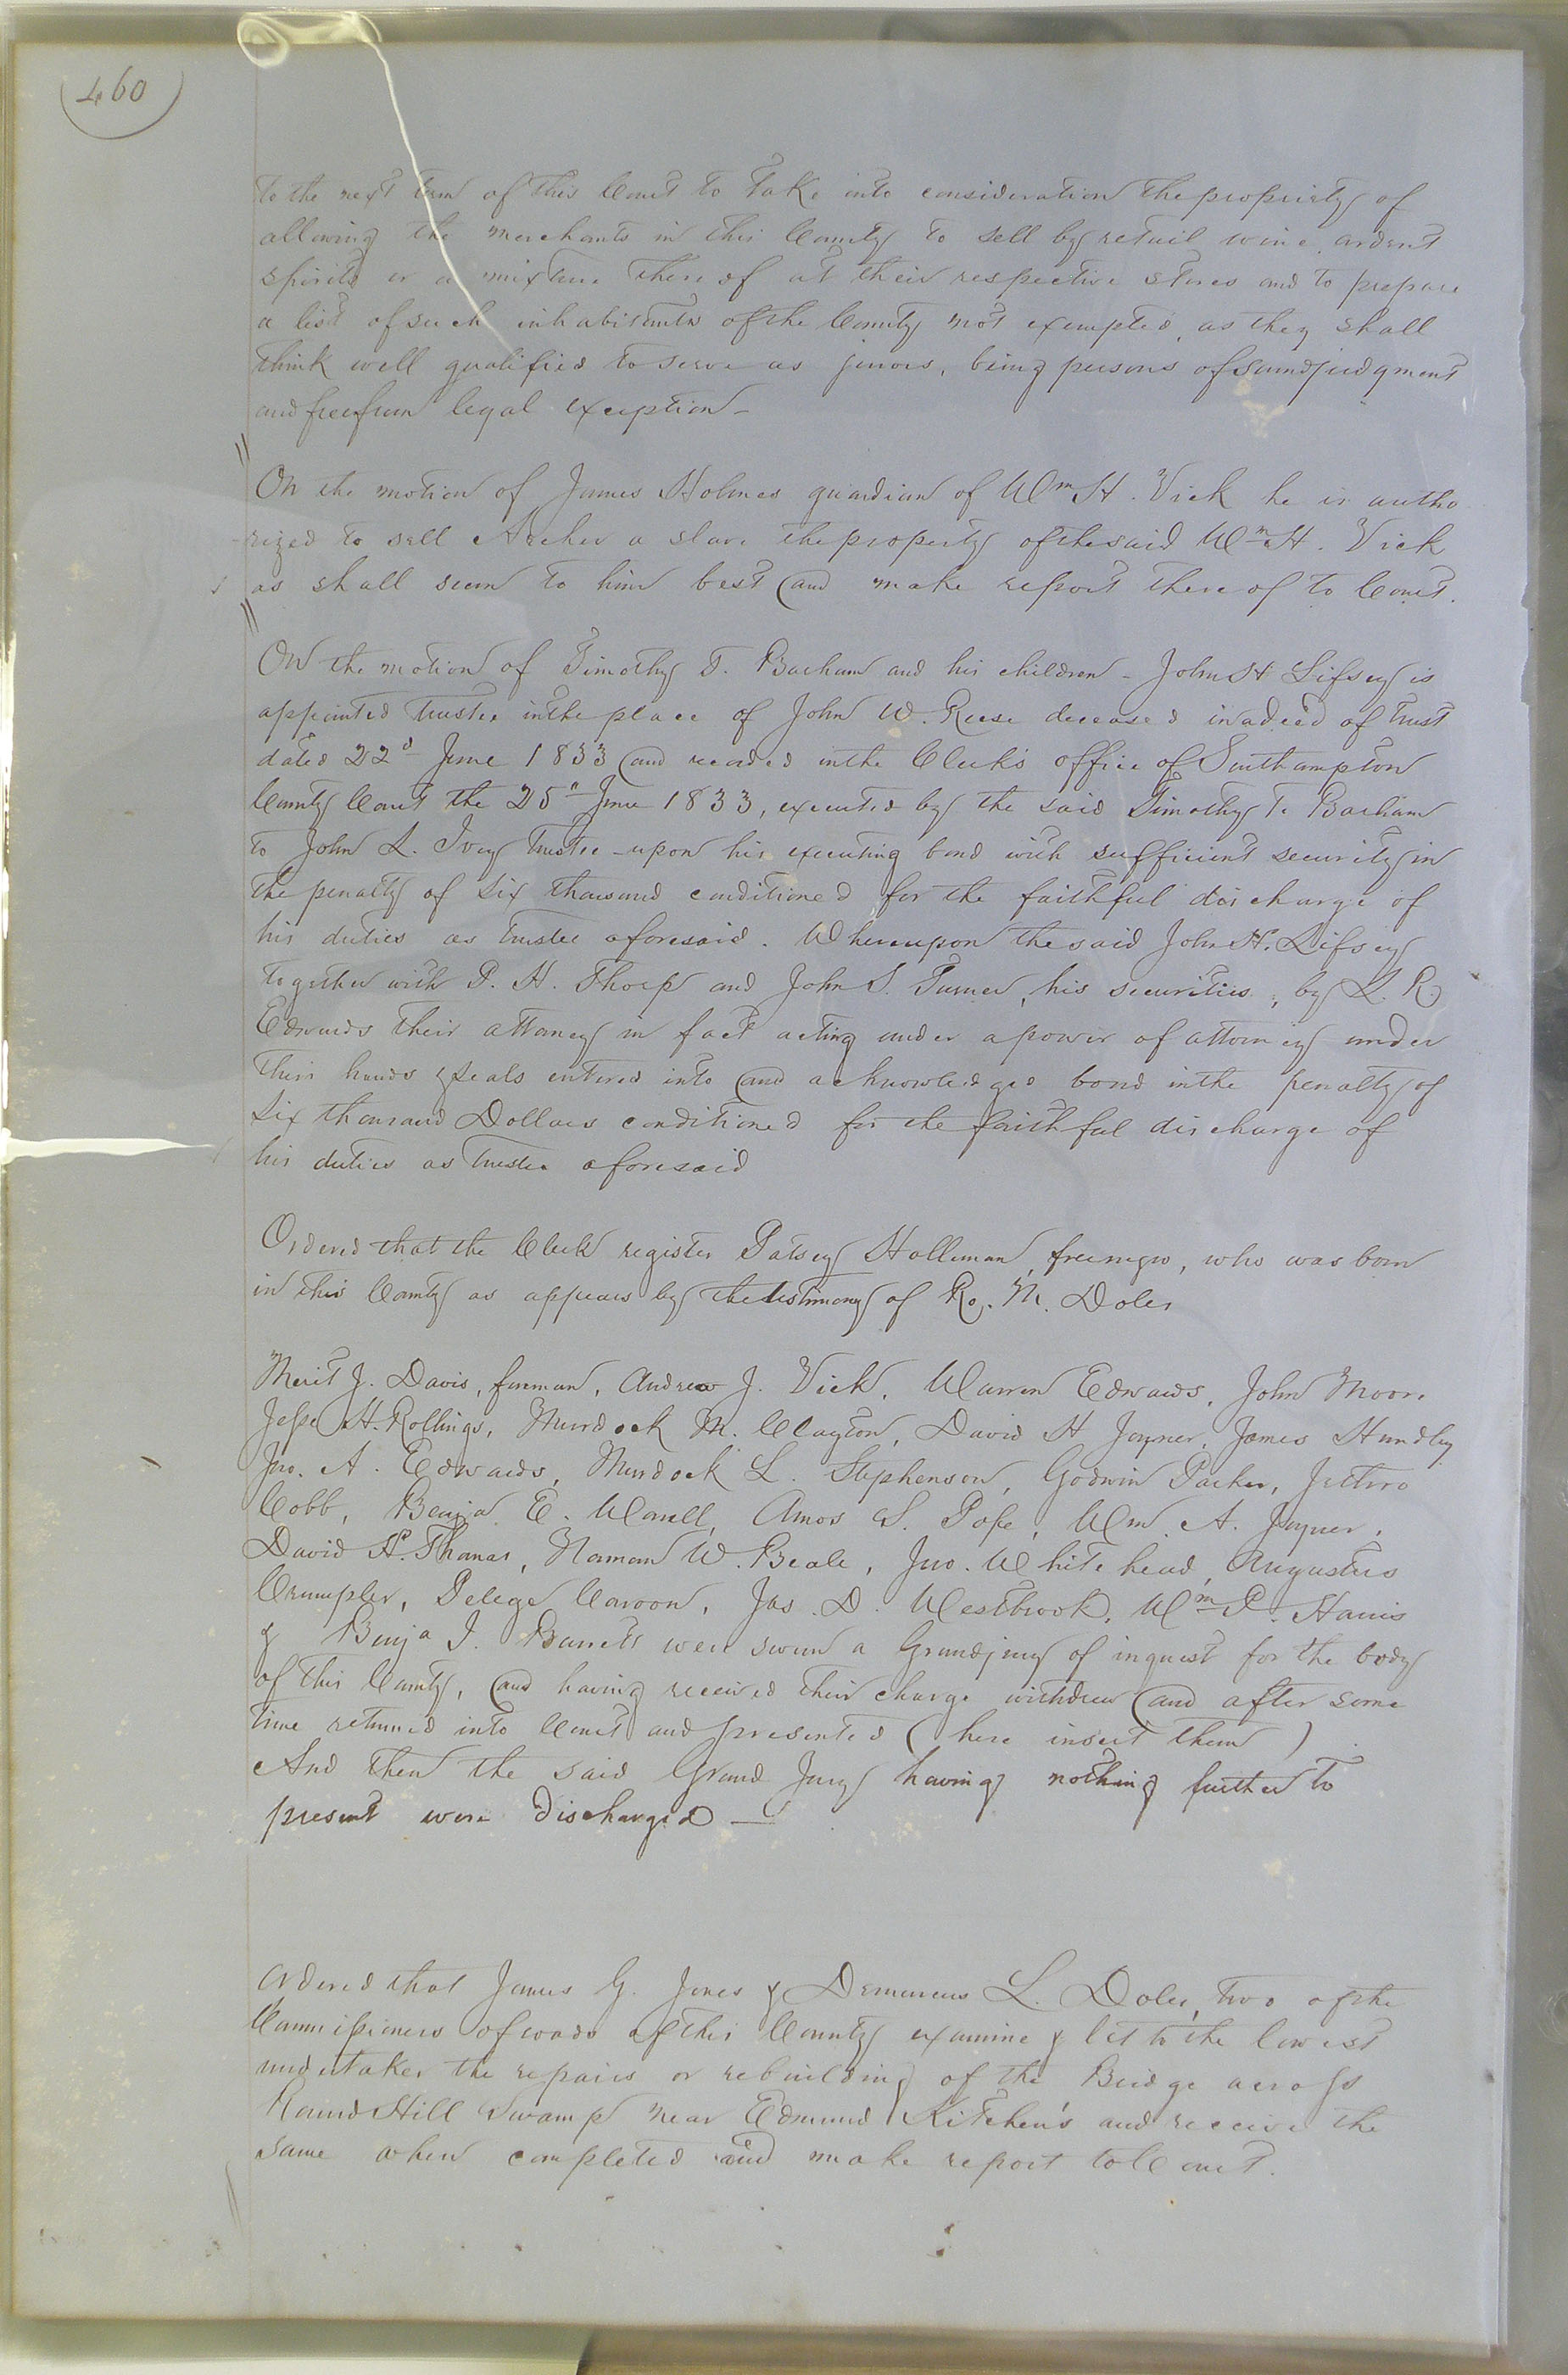 460
to the next term of this Court to take into consideration the propriety of
allowing the merchants in this County to sell by retail wine ardent
spirits or a mixture thereof at their respective stores and to prepare
a list of such inhabitants of the County not exempted, as they shall
think well qualified to serve as jurors, being persons of sound judgment
and free from legal exception -
On the motion of James Holmes guardian of Wm H. Vick he is autho
rized to sell Archer a slave the property of the said Wm H. Vick
as shall seem to him best and make report thereof to Court.
On the motion of Timothy T. Barham and his children - John H Lifsey is
appointed trustee in the place of John W. Reese deceased in a deed of trust
dated 22d June 1833 and recorded in the Clerk's office of Southampton
County Court the 25th June 1833, executed by the said Timothy T. Barham
to John L. Ivey trustee - upon his executing bond with sufficient security in
the penalty of six thousand conditioned for the faithful discharge of
his duties as trustee aforesaid. Whereupon the said John H. Lifsey
together with P. H. Thorp and John S. Turner, his securities, by L. R.
Edwards their attorney in fact acting under a power of attorney under
their hands & seals entered into and acknowledged bond in the penalty of
six thousand Dollars conditioned for the faithful discharge of
his duties as trustee aforesaid
Ordered that the Clerk register Patsey Holliman, free negro, who was born
in this County as appears by the testimony of Ro. M. Doles
Merit J. Davis, foreman, Andrew J. Vick, Warren Edwards, John Moore
Jesse H. Rollings, Murdock M. Clayton, David H Joyner, James Hundley
Jno. A. Edwards, Murdock L. Stephenson, Godwin Parker, Jethro
Cobb, Benja E. Worrell, Amos S. Pope, Wm. A. Joyner,
David H. Thomas, Naman W. Beale, Jno. Whitehead, Augustus
Crumpler, Pelege Caroon, Jas. D. Westbrook, Wm P. Harris
& Benja J. Barrett were sworn a Grand jury of inquest for the body
of this County, and having received their charge withdrew and after some
time returned into Court and presented (here insert them)
And then the said Grand Jury having nothing further to
present were discharged —
Ordered that James G. Jones & Demarcus L. Doles, two of the
Commissioners of roads of this County examine & let to the lowest
undertaker the repairs or rebuilding of the Bridge across
Round Hill Swamp near Edmund Kitchen's and receive the
same when completed and make report to Court.